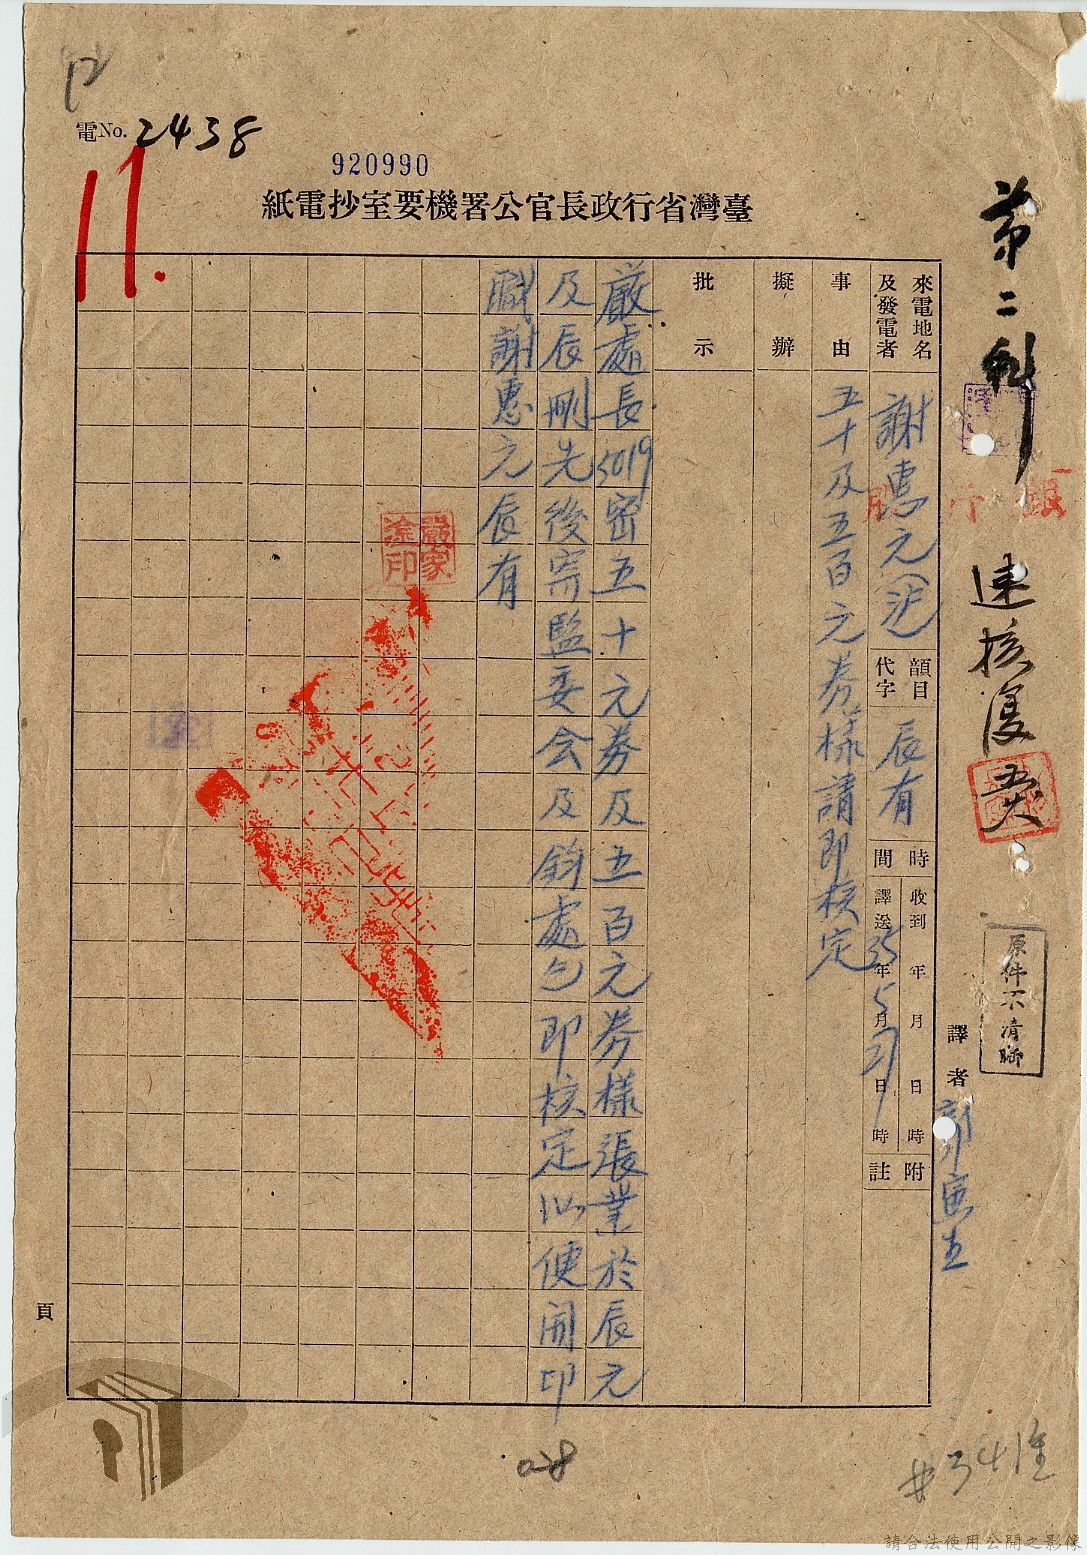 12
電No. 2438
920990
11.
臺灣省行政長官公署機要室抄電紙
第二科
速核復
原件不清晰
譯者
來電地名及發電者
謝惠元(沪)
韻目代字
辰有
時間
收到 年 月 日 時
譯送 35年5月27日 時
附註
事由
五十及五百元券樣請即核定
擬辦
批示
嚴處長5019密五十元券及五百元券樣張業於辰元
及辰刪先後寄監委会及鈞處乞即核定以便開印
職謝惠元辰有
嚴家淦印
頁
028
請合法使用公開之影像